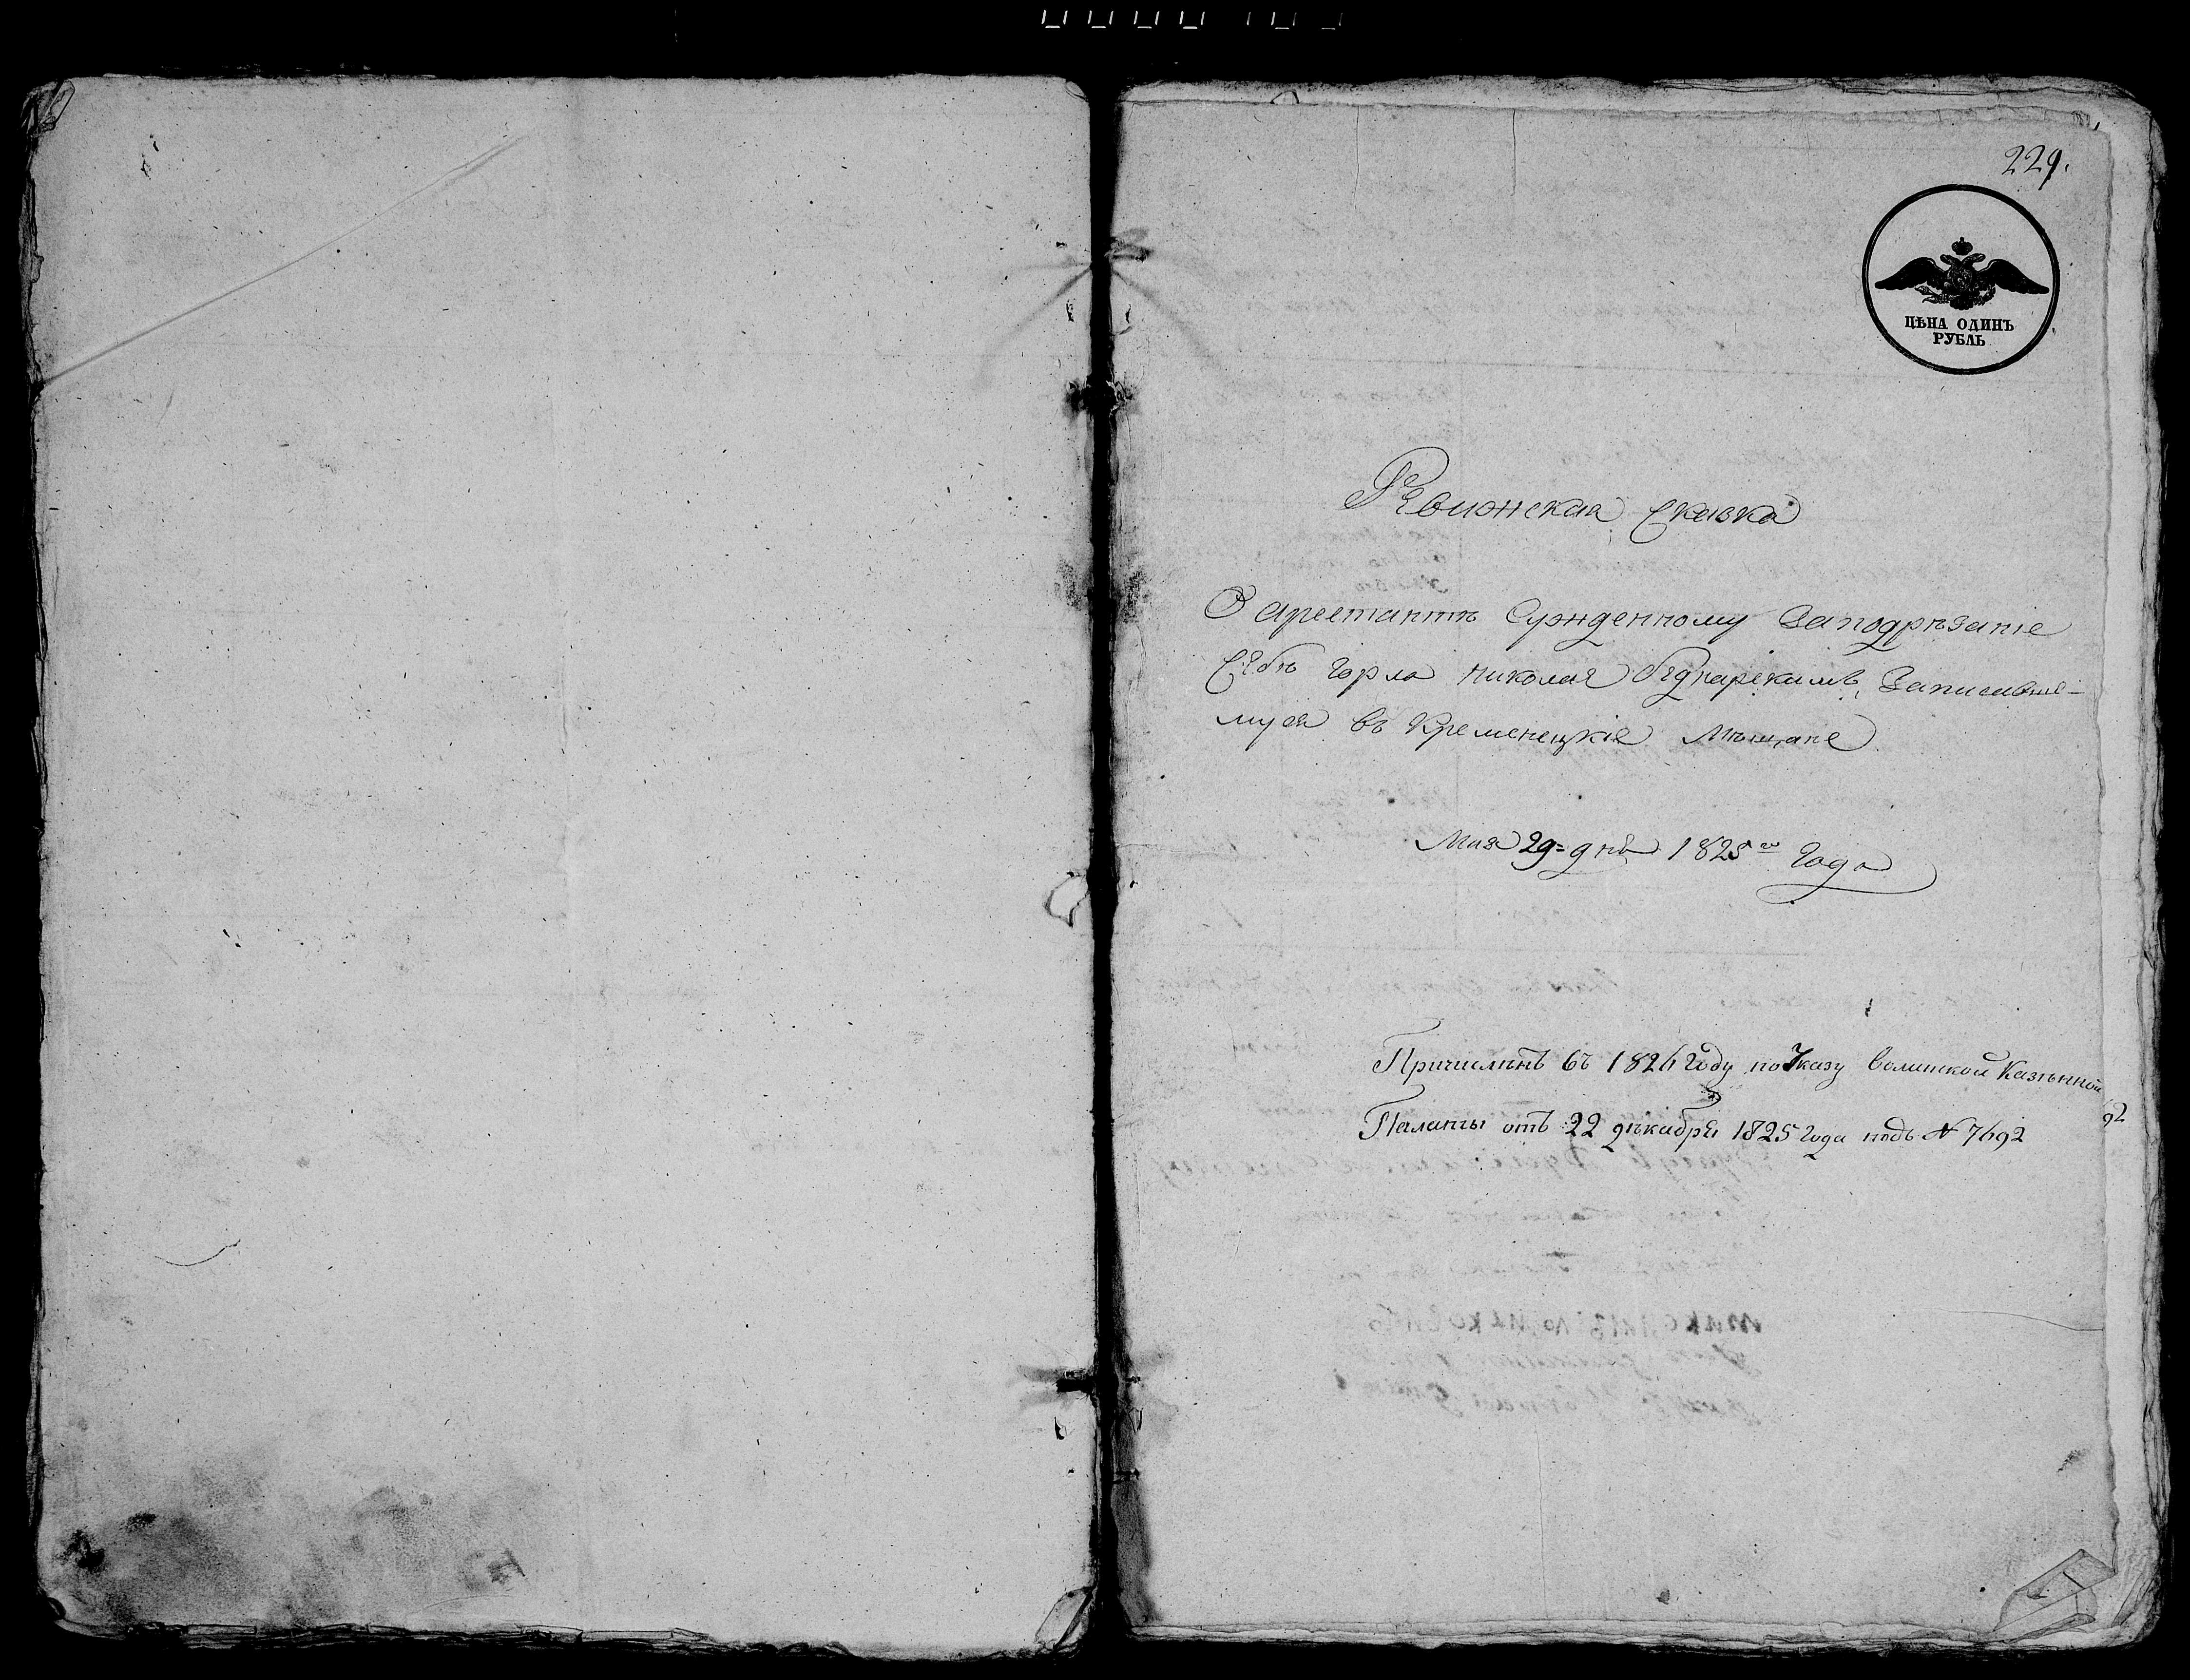 229.
ЦѢНА ОДИНЪ
РУБЛЬ
Ревизская Сказка
О арестантѣ Сужденному Заподрѣзаніе
Себѣ горла Николая Беднарскимъ, Записавше-
муся въ Кременецкіе Мѣщане
Мая 29= дня 1825го Года
Причисленъ въ 1826 Году по Указу Волинской Казѣнной
Палаты отъ 22 дѣкабря 1825 Года подъ N 7692
92